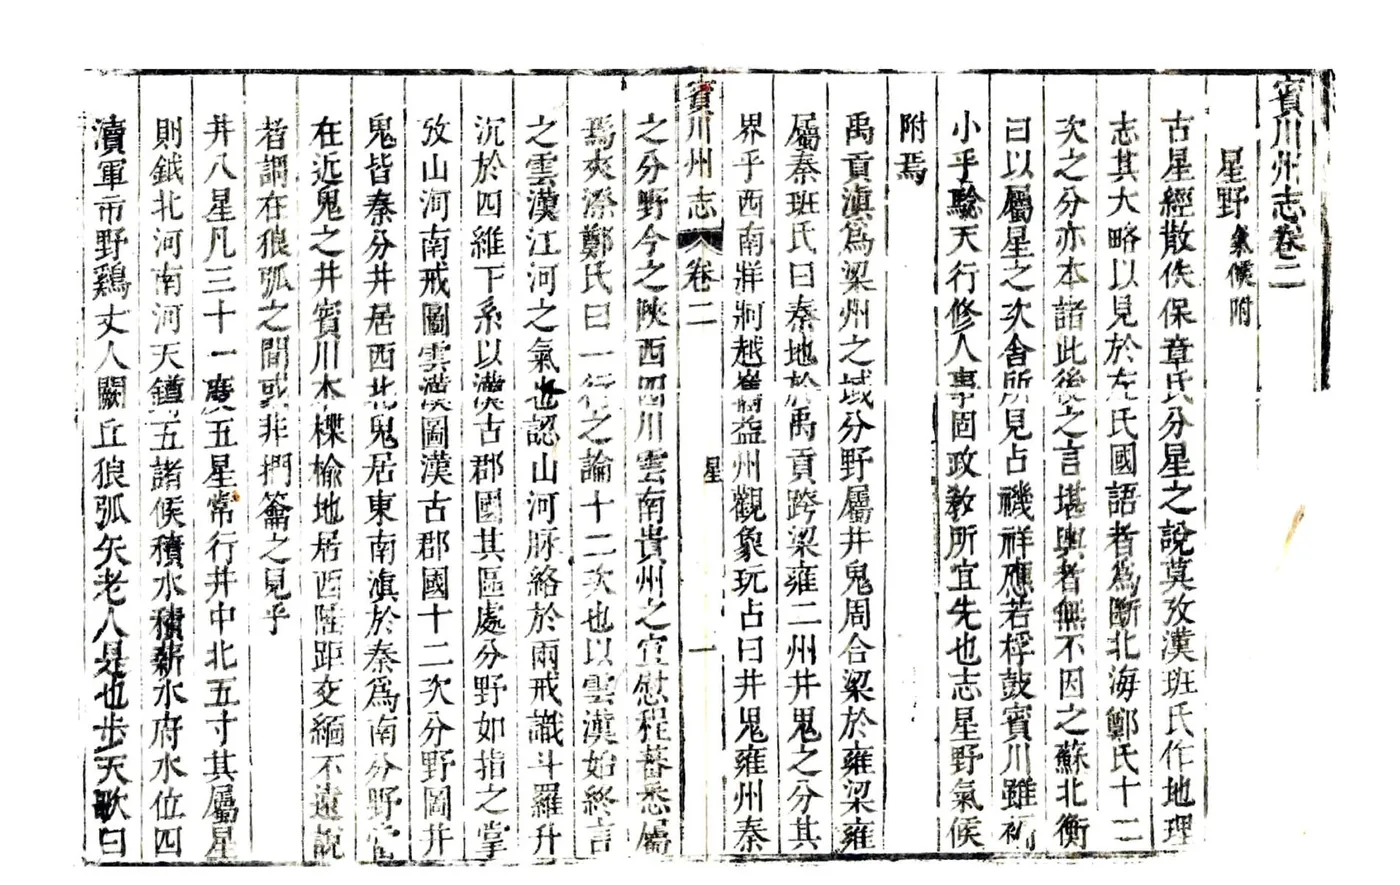 賓川州志卷二
星野氣候附
古星經散佚保章氏分星之說莫攷漢班氏作地理
志其大略以見於左氏國語者爲斷北海鄭氏十二
次之分亦本諸此後之言堪輿者無不因之蘇北衡
曰以屬星之次舍所見占禨祥應若桴鼓賓川雖
小乎驗天行修人事固政教所宜先也志星野氣候
附焉
禹貢滇爲梁州之域分野屬井鬼周合梁於雍梁雍
屬秦班氏曰秦地於禹貢跨梁雍二州井鬼之分其
界乎西南牂牁越嶲益州觀象玩占曰井鬼雍州秦
賓川州志 卷二 星 一
之分野今之陝西四川雲南貴州之宜慰程蕃悉屬
焉夾漈鄭氏曰一行之論十二次也以雲漢始終言
之雲漢江河之氣也認山河脉絡於兩戒識斗羅升
沉於四維下系以漢古郡國其區處分野如指之掌
攷山河南戒圖雲漢圖漢古郡國十二次分野圖井
鬼皆秦分井居西北鬼居東南滇於秦爲南分野當
在近鬼之井賓川本楪榆地居西陲距交緬不遠說
者謂在狼弧之間或非捫籥之見乎
井八星凡三十一度五星常行井中北五寸其屬星
則鉞北河南河天罇五諸候積水積薪水府水位四
瀆軍市野鷄丈人闕丘狼弧矢老人是也步天歌曰